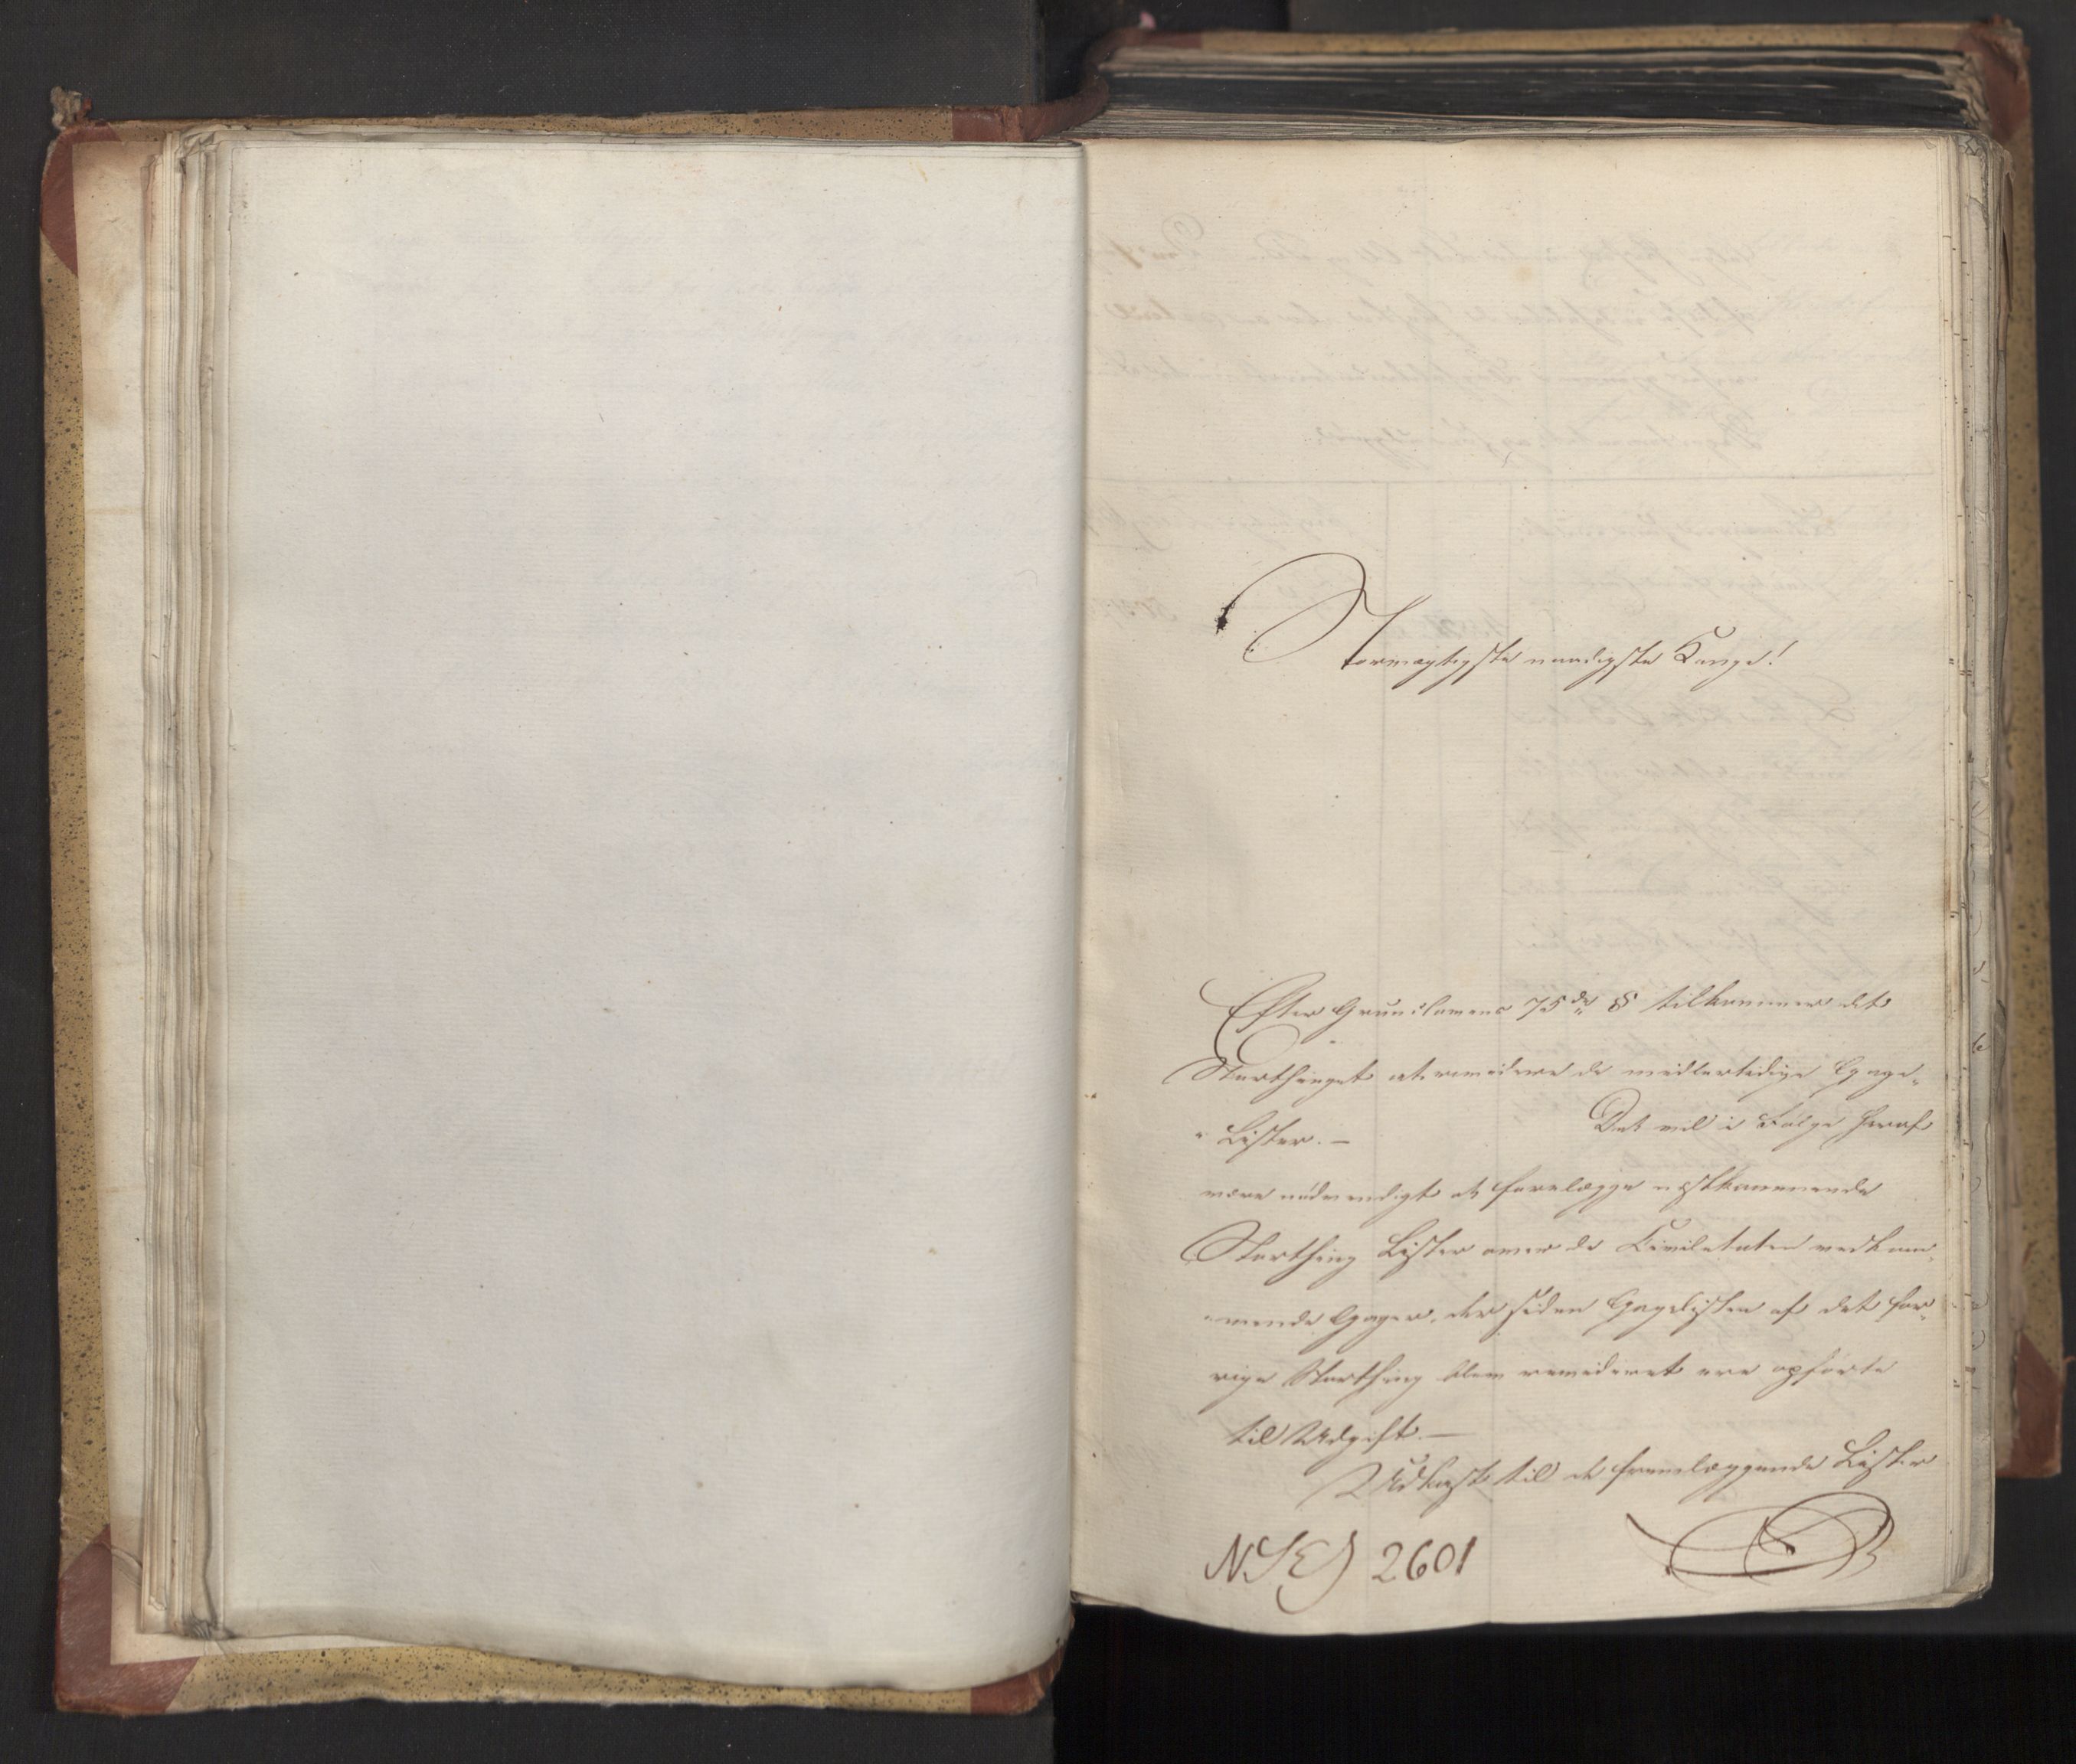 Stormægtigste naadigste Konge!
Efter Grundlovens 75de § tilkommer det
Storthinget at revidere de midlertidige Gage-
Lister. — Det vil i Følge heraf
være nødvendigt at forelægge næstkommende
Storthing Lister over de Civiletaten vedkom-
mende Gager, der siden Gagelisten af det for-
rige Storthing blev revideret ere opførte
til Udgift. —
Udkast til de fremlæggende Lister
2601